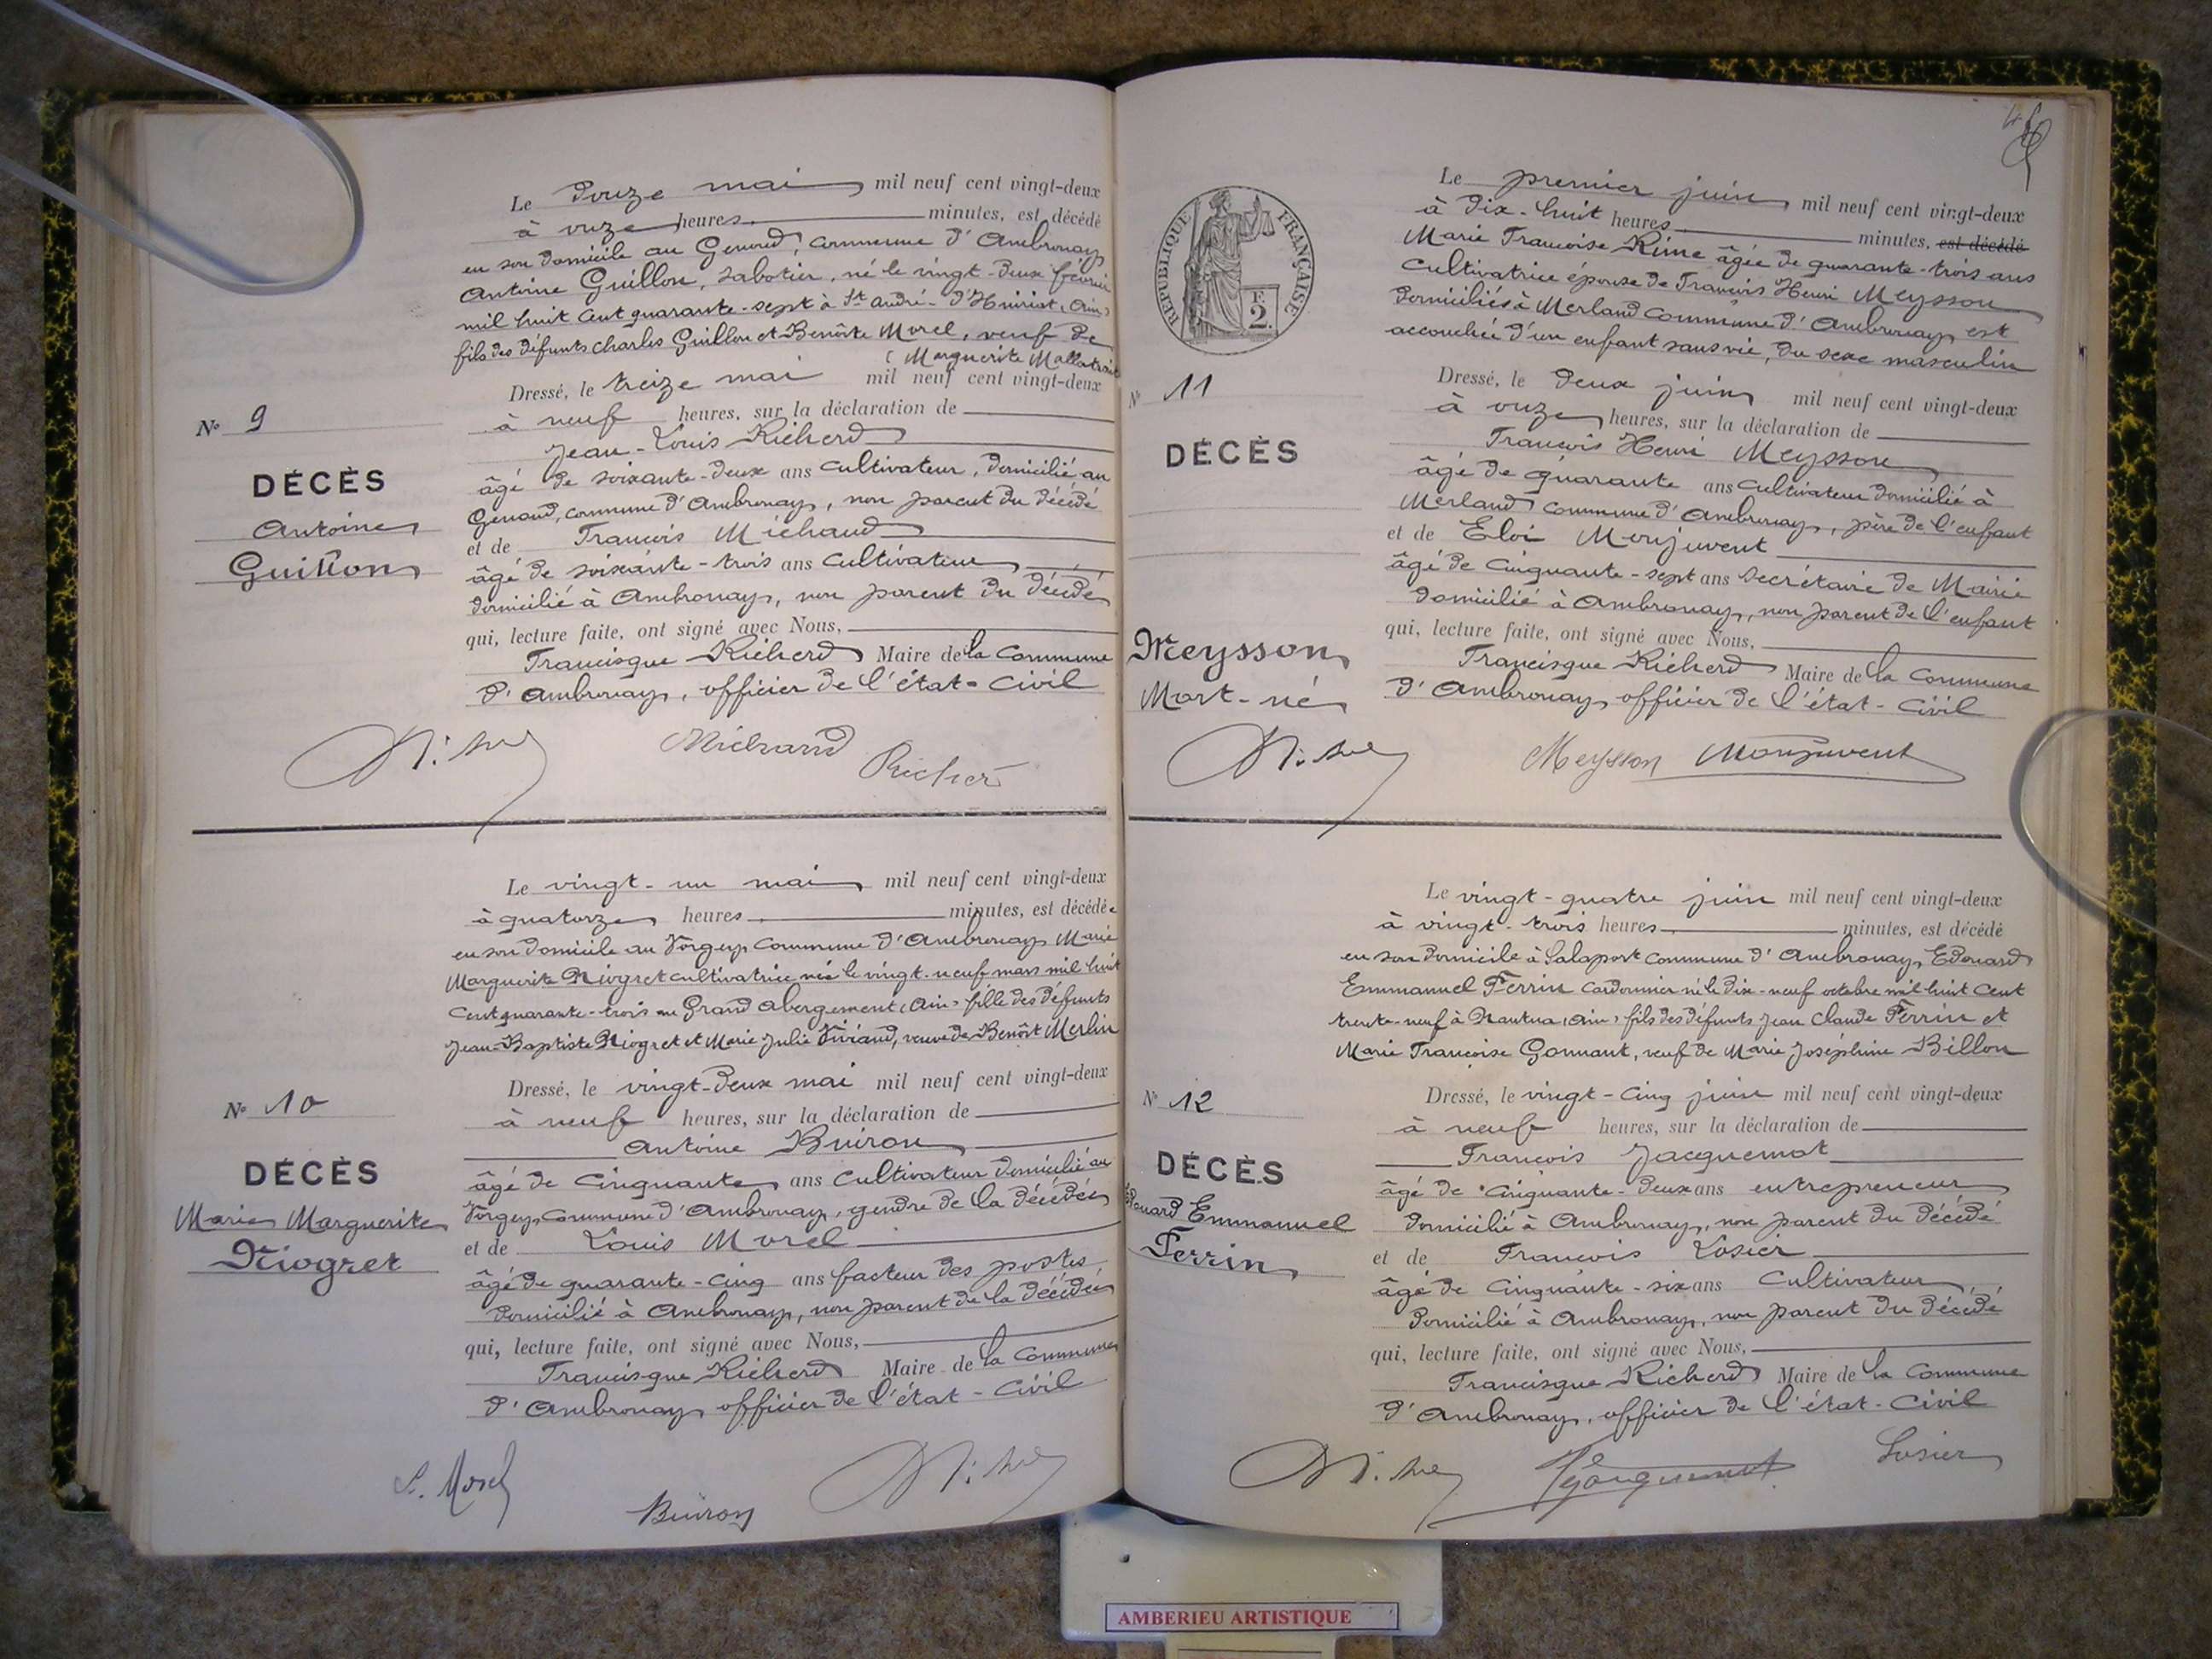 Le douze mai mil neuf cent vingt-deux
à onze heures minutes, est décédé
en son domicile au Genoud, commune d'Ambronay
Antoine Guillon, sabotier, né le vingt-deux février
mil huit cent quarante-sept à St André-d'Huiriat (Ain)
fils des défunts Charles Guillon et Benoîte Morel, veuf de
(Marguerite Mallatrait
Dressé, le treize mai mil neuf cent vingt-deux
à neuf heures, sur la déclaration de
Jean-Louis Richerd
âgé de soixante-deux ans cultivateur, domicilié au
Genoud, commune d'Ambronay, non parent du décédé
et de François Michaud
âgé de soixante-trois ans cultivateur
domicilié à Ambronay, non parent du décédé
qui, lecture faite, ont signé avec Nous,
Francisque Richerd Maire de la commune
d'Ambronay, officier de l'état-civil
Michaud
Richerd
N° 9
DÉCÈS
Antoine
Guillon
Le vingt-un mai mil neuf cent vingt-deux
à quatorze heures minutes, est décédée
en son domicile au Vorgey commune d'Ambronay Marie
Marguerite Niogret cultivatrice née le vingt-neuf mars mil huit
cent quarante-trois au Grand Abergement (Ain) fille des défunts
Jean-Baptiste Niogret et Marie Julie Vivland, veuve de Benoît Merlin
Dressé, le vingt-deux mai mil neuf cent vingt-deux
à neuf heures, sur la déclaration de
Antoine Buiron
âgé de cinquante ans cultivateur domicilié au
Vorgey, commune d'Ambronay, gendre de la décédée
et de Louis Morel
âgé de quarante-cinq ans facteur des postes
domicilié à Ambronay, non parent de la décédée
qui, lecture faite, ont signé avec Nous,
Francisque Richerd Maire de la commune
d'Ambronay officier de l'état-civil
L. Morel
Buiron
N° 10
DÉCÈS
Marie Marguerite
Niogret
RÉPUBLIQUE FRANÇAISE
F.
2.
Le premier juin mil neuf cent vingt-deux
à dix-huit heures minutes, est décédé
Marie Françoise Rime âgée de quarante-trois ans
cultivatrice épouse de François Henri Meysson
domiciliés à Merland commune d'Ambronay est
accouchée d'un enfant sans vie, du sexe masculin
Dressé, le deux juin mil neuf cent vingt-deux
à onze heures, sur la déclaration de
François Henri Meysson
âgé de quarante ans cultivateur domicilié à
Merland commune d'Ambronay, père de l'enfant
et de Eloi Monjuvent
âgé de cinquante-sept ans secrétaire de Mairie
domicilié à Ambronay, non parent de l'enfant
qui, lecture faite, ont signé avec Nous,
Francisque Richerd Maire de la commune
d'Ambronay officier de l'état-civil
Meysson Monjuvent
N° 11
DÉCÈS
Meysson
Mort-né
Le vingt-quatre juin mil neuf cent vingt-deux
à vingt-trois heures minutes, est décédé
en son domicile à Salaport commune d'Ambronay, Edouard
Emmanuel Perrin cordonnier né le dix-neuf octobre mil huit cent
trente-neuf à Nantua (Ain) fils des défunts Jean Claude Perrin et
Marie Françoise Gonnant, veuf de Marie Joséphine Billon
Dressé, le vingt-cinq juin mil neuf cent vingt-deux
à neuf heures, sur la déclaration de
François Jacquemot
âgé de cinquante-deux ans entrepreneur
domicilié à Ambronay, non parent du décédé
et de François Losier
âgé de cinquante-six ans cultivateur
domicilié à Ambronay, non parent du décédé
qui, lecture faite, ont signé avec Nous,
Francisque Richerd Maire de la commune
d'Ambronay, officier de l'état-civil
Jacquemot
Losier
N° 12
DÉCÈS
Edouard Emmanuel
Perrin
AMBERIEU ARTISTIQUE